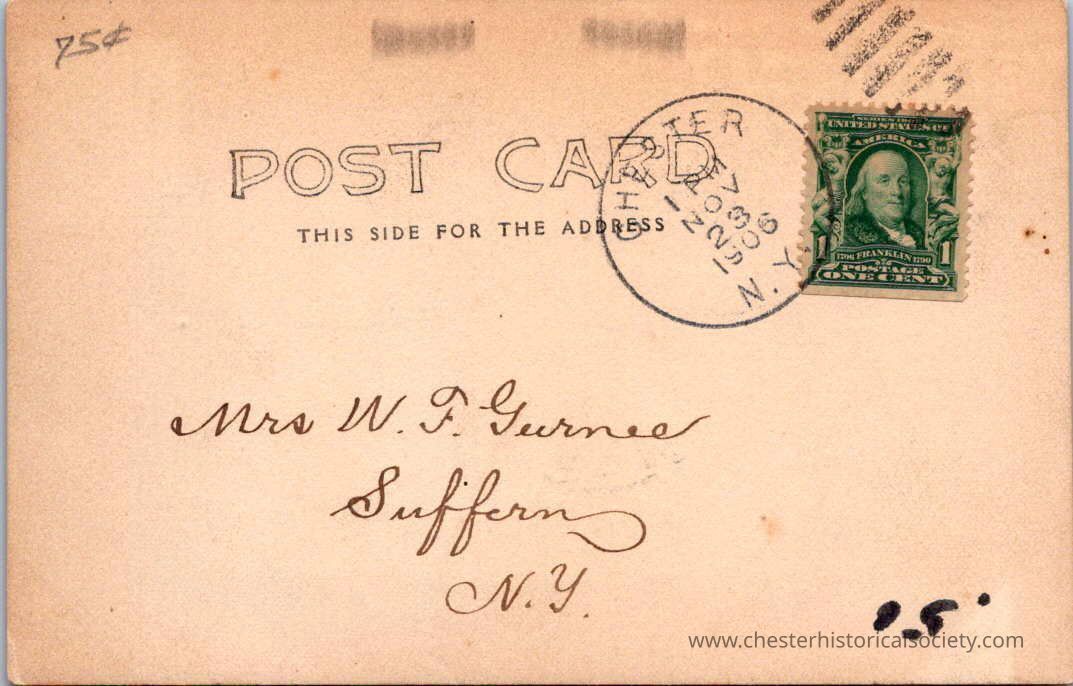 75¢
POST CARD
THIS SIDE FOR THE ADDRESS
CHESTER
1 PM
NOV
23
1906
N.Y.
SERIES 1902
UNITED STATES OF
AMERICA
1 1
1706 FRANKLIN 1790
POSTAGE
ONE CENT
Mrs W. F. Gurnee
Suffern
N.Y.
www.chesterhistoricalsociety.com